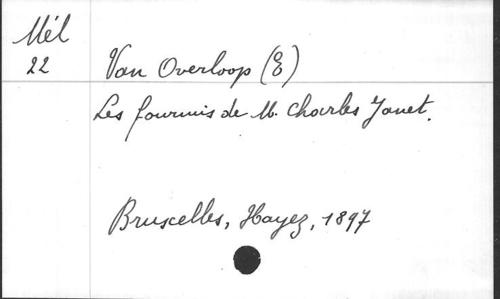 Mél
22
Van Overloop (E)
Les fourmis de M. Charles Janet.
Bruxelles, Hayez, 1897